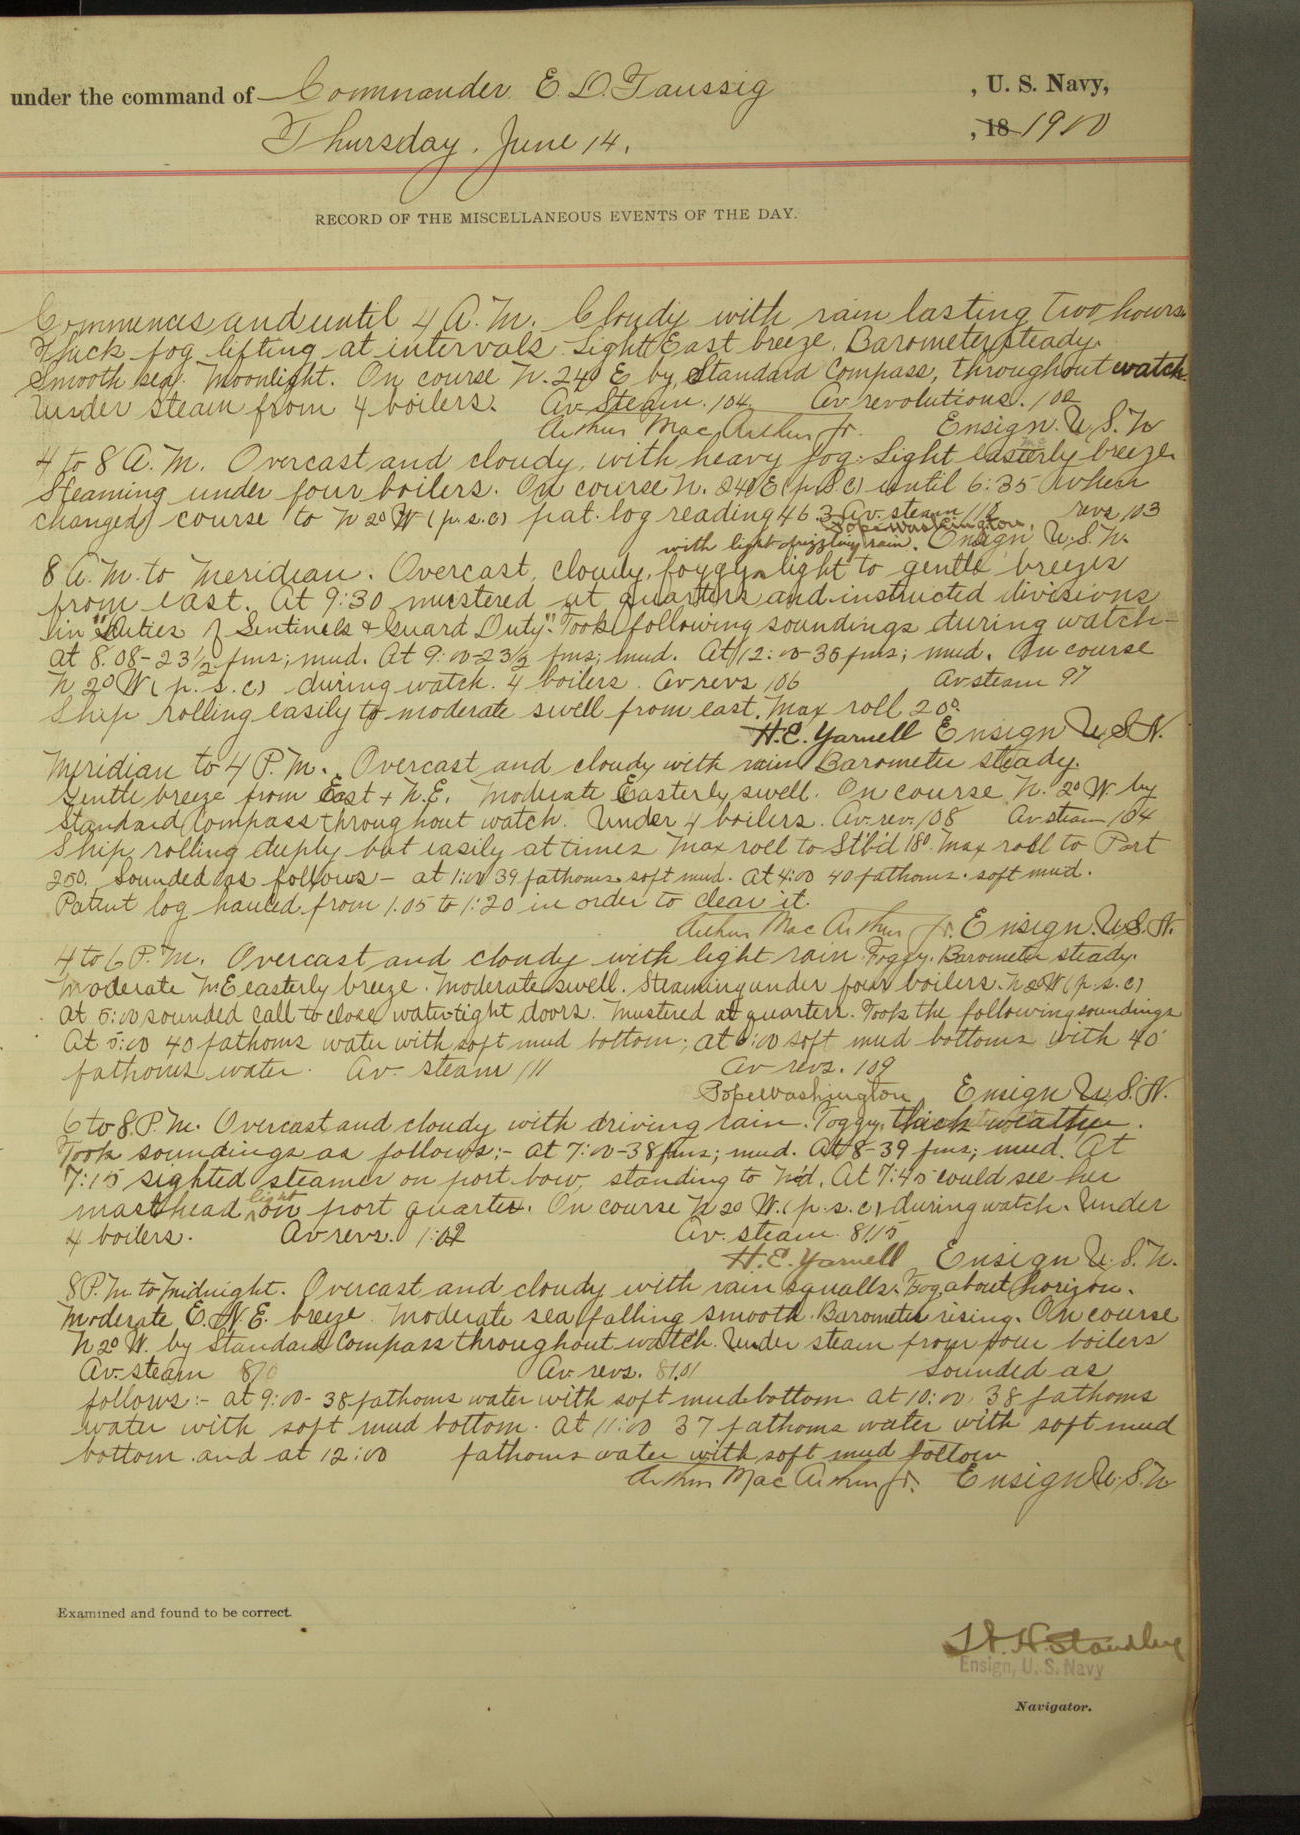 under the command of Commander E. D. Taussig , U. S. Navy,
Thursday. June 14. , 18 1900
RECORD OF THE MISCELLANEOUS EVENTS OF THE DAY.
Commences and until 4 A.M. Cloudy with rain lasting two hours.
Thick fog lifting at intervals. Light East breeze. Barometer steady.
Smooth sea. Moonlight. On course N. 24° E by Standard Compass, throughout watch.
Under steam from 4 boilers. Av. Steam. 104 Av revolutions. 102
Arthur Mac Arthur Jr. Ensign. U.S.N
4 to 8 A.M. Overcast and cloudy, with heavy fog. Light easterly breeze.
Steaming under four boilers. On course N. 24 E (p.s.c) until 6:35 when
changed course to N 20 W (p.s.c) pat. log reading 46.3 Av. steam 112 revs 103
Pope Washington, Ensign U.S.N.
with light drizzling rain.
8 A.M. to Meridian. Overcast, cloudy, foggy light to gentle breezes
from east. At 9:30 mustered at quarters and instructed divisions
in "Duties of Sentinels & Guard Duty". Took following soundings during watch-
at 8.08-23½ fms; mud. At 9:00-23½ fms; mud. At 12:00-36 fms; mud. On course
N 20 W (p.s.c) during watch. 4 boilers. Av revs 106 Av steam 97
Ship rolling easily to moderate swell from east. Max roll 20°.
H.E. Yarnell Ensign U.S.N.
Meridian to 4 P.M. Overcast and cloudy with rain. Barometer steady.
Gentle breeze from East & N.E. Moderate Easterly swell. On course N. 20 W. by
Standard Compass throughout watch. Under 4 boilers. Av. rev. 108 Av steam 104
Ship rolling deeply but easily at times. Max roll to Stb'd 18°. Max roll to Port
25°. Sounded as follows - at 1:00 39 fathoms soft mud. At 4:00 40 fathoms. soft mud.
Patent log hauled from 1.05 to 1:20 in order to clear it.
Arthur Mac Arthur Jr. Ensign. U.S.N.
4 to 6 P.M. Overcast and cloudy with light rain. Foggy. Barometer steady.
Moderate easterly breeze. Moderate swell. Steaming under four boilers. N 20 W (p.s.c)
At 5:00 sounded call to close water-tight doors. Mustered at quarters. Took the following soundings
At 5:00 40 fathoms water with soft mud bottom; at 6:00 soft mud bottoms with 40
fathoms water. Av. steam 111 Av revs. 109
Pope Washington Ensign U.S.N.
6 to 8 P.M. Overcast and cloudy with driving rain. Foggy, thick weather.
Took soundings as follows:- at 7:00-38 fms; mud. At 8-39 fms; mud. At
7:15 sighted steamer on port bow, standing to N'd. At 7:45 could see her
masthead light on port quarter. On course N 20 W. (p.s.c) during watch. Under
4 boilers. Av revs. Av. steam
H.E. Yarnell Ensign U.S.N.
8 P.M. to Midnight. Overcast and cloudy with rain squalls. Fog about horizon.
Moderate E.N.E. breeze. Moderate sea falling smooth. Barometer rising. On course
N 20 W. by Standard Compass throughout watch. Under steam from four boilers
Av. steam Av. revs. Sounded as
follows:- at 9:00- 38 fathoms water with soft mud bottom. At 10:00, 38 fathoms
water with soft mud bottom. At 11:00 37 fathoms water with soft mud
bottom. and at 12:00 fathoms water with soft mud bottom
Arthur Mac Arthur Jr. Ensign U.S.N
Examined and found to be correct.
W. H. Standley
Ensign, U. S. Navy
Navigator.